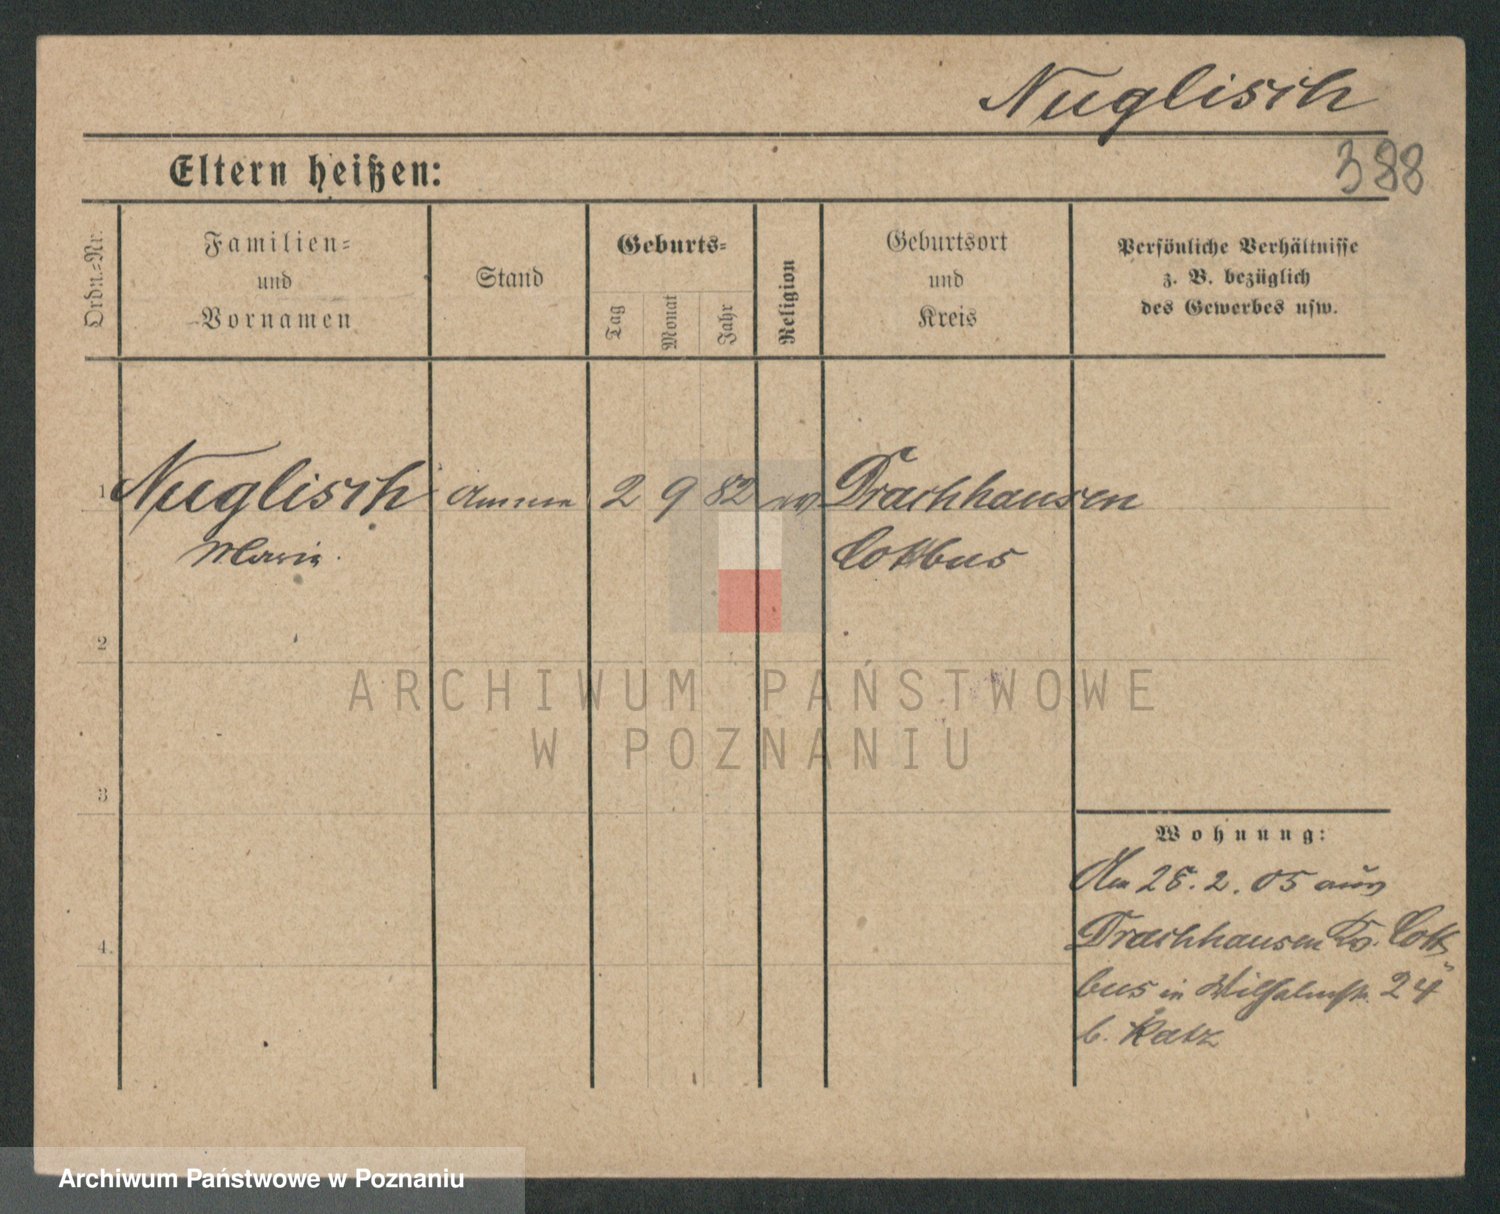 Nuglisch
388
Eltern heißen:
Ordn.-Nr.
Familien-
und
Vornamen
Stand
Geburts-
Tag
Monat
Jahr
Religion
Geburtsort
und
Kreis
Persönliche Verhältnisse
z. B. bezüglich
des Gewerbes usw.
1 Nuglisch Amme 2 9 82 ev Drachhausen
Maria Cottbus
2
ARCHIWUM PAŃSTWOWE
W POZNANIU
3
Wohnung:
Am 28.2.05 aus
4. Drachhausen Kr. Cott
bus in Wilhelmstr. 24
b. Katz
Archiwum Państwowe w Poznaniu